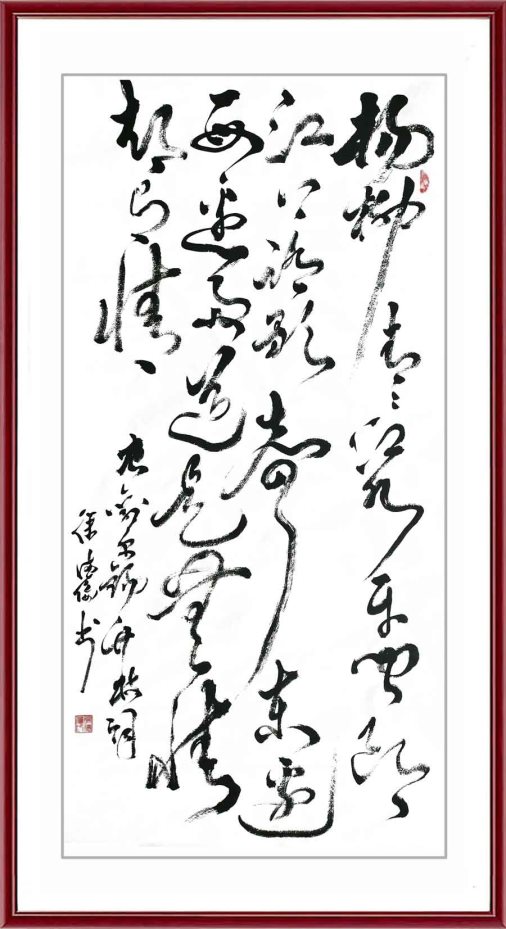 杨柳青青江水平闻郎
江上踏歌声东边
西边雨道是无情
却有情
唐刘禹锡竹枝词
徐书